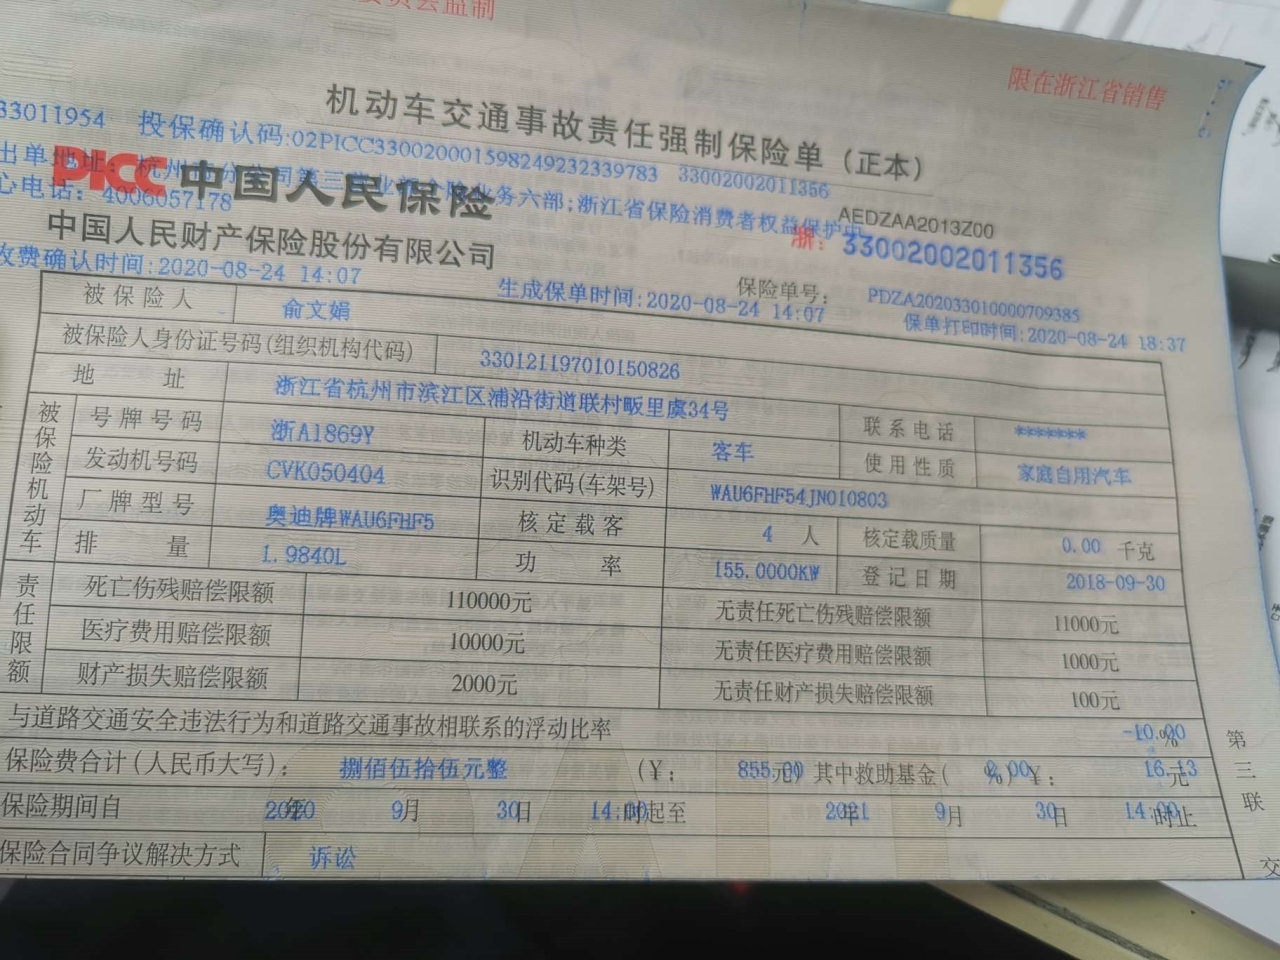 限在浙江省销售
机动车交通事故责任强制保险单（正本）
33011954 投保确认码:02PICC330020001598249232339783 33002002011356
出单地址: 杭州市分公司第三营业部 业务六部;浙江省保险消费者权益保护中
心电话: 4006057178
PICC 中国人民保险
AEDZAA2013Z00
中国人民财产保险股份有限公司
浙: 33002002011356
收费确认时间:2020-08-24 14:07 生成保单时间:2020-08-24 14:07
保险单号: PDZA202033010000709385
保单打印时间:2020-08-24 18:37
被保险人 俞文娟
被保险人身份证号码(组织机构代码) 330121197010150826
地址 浙江省杭州市滨江区浦沿街道联村畈里虞34号
被保险机动车
号牌号码 浙A1869Y 机动车种类 客车 联系电话 *******
使用性质 家庭自用汽车
发动机号码 CVK050404 识别代码(车架号) WAU6FHF54JN010803
厂牌型号 奥迪牌WAU6FHF5 核定载客 4 人 核定载质量 0.00 千克
排量 1.9840L 功率 155.0000KW 登记日期 2018-09-30
责任限额
死亡伤残赔偿限额 110000元 无责任死亡伤残赔偿限额 11000元
医疗费用赔偿限额 10000元 无责任医疗费用赔偿限额 1000元
财产损失赔偿限额 2000元 无责任财产损失赔偿限额 100元
与道路交通安全违法行为和道路交通事故相联系的浮动比率 -10.00%
保险费合计(人民币大写): 捌佰伍拾伍元整 (￥: 855.00元) 其中救助基金( 0.00%)￥: 16.13元
保险期间自 2020年 9月 30日 14:00时起至 2021年 9月 30日 14:00时止
保险合同争议解决方式 诉讼
第三联
交